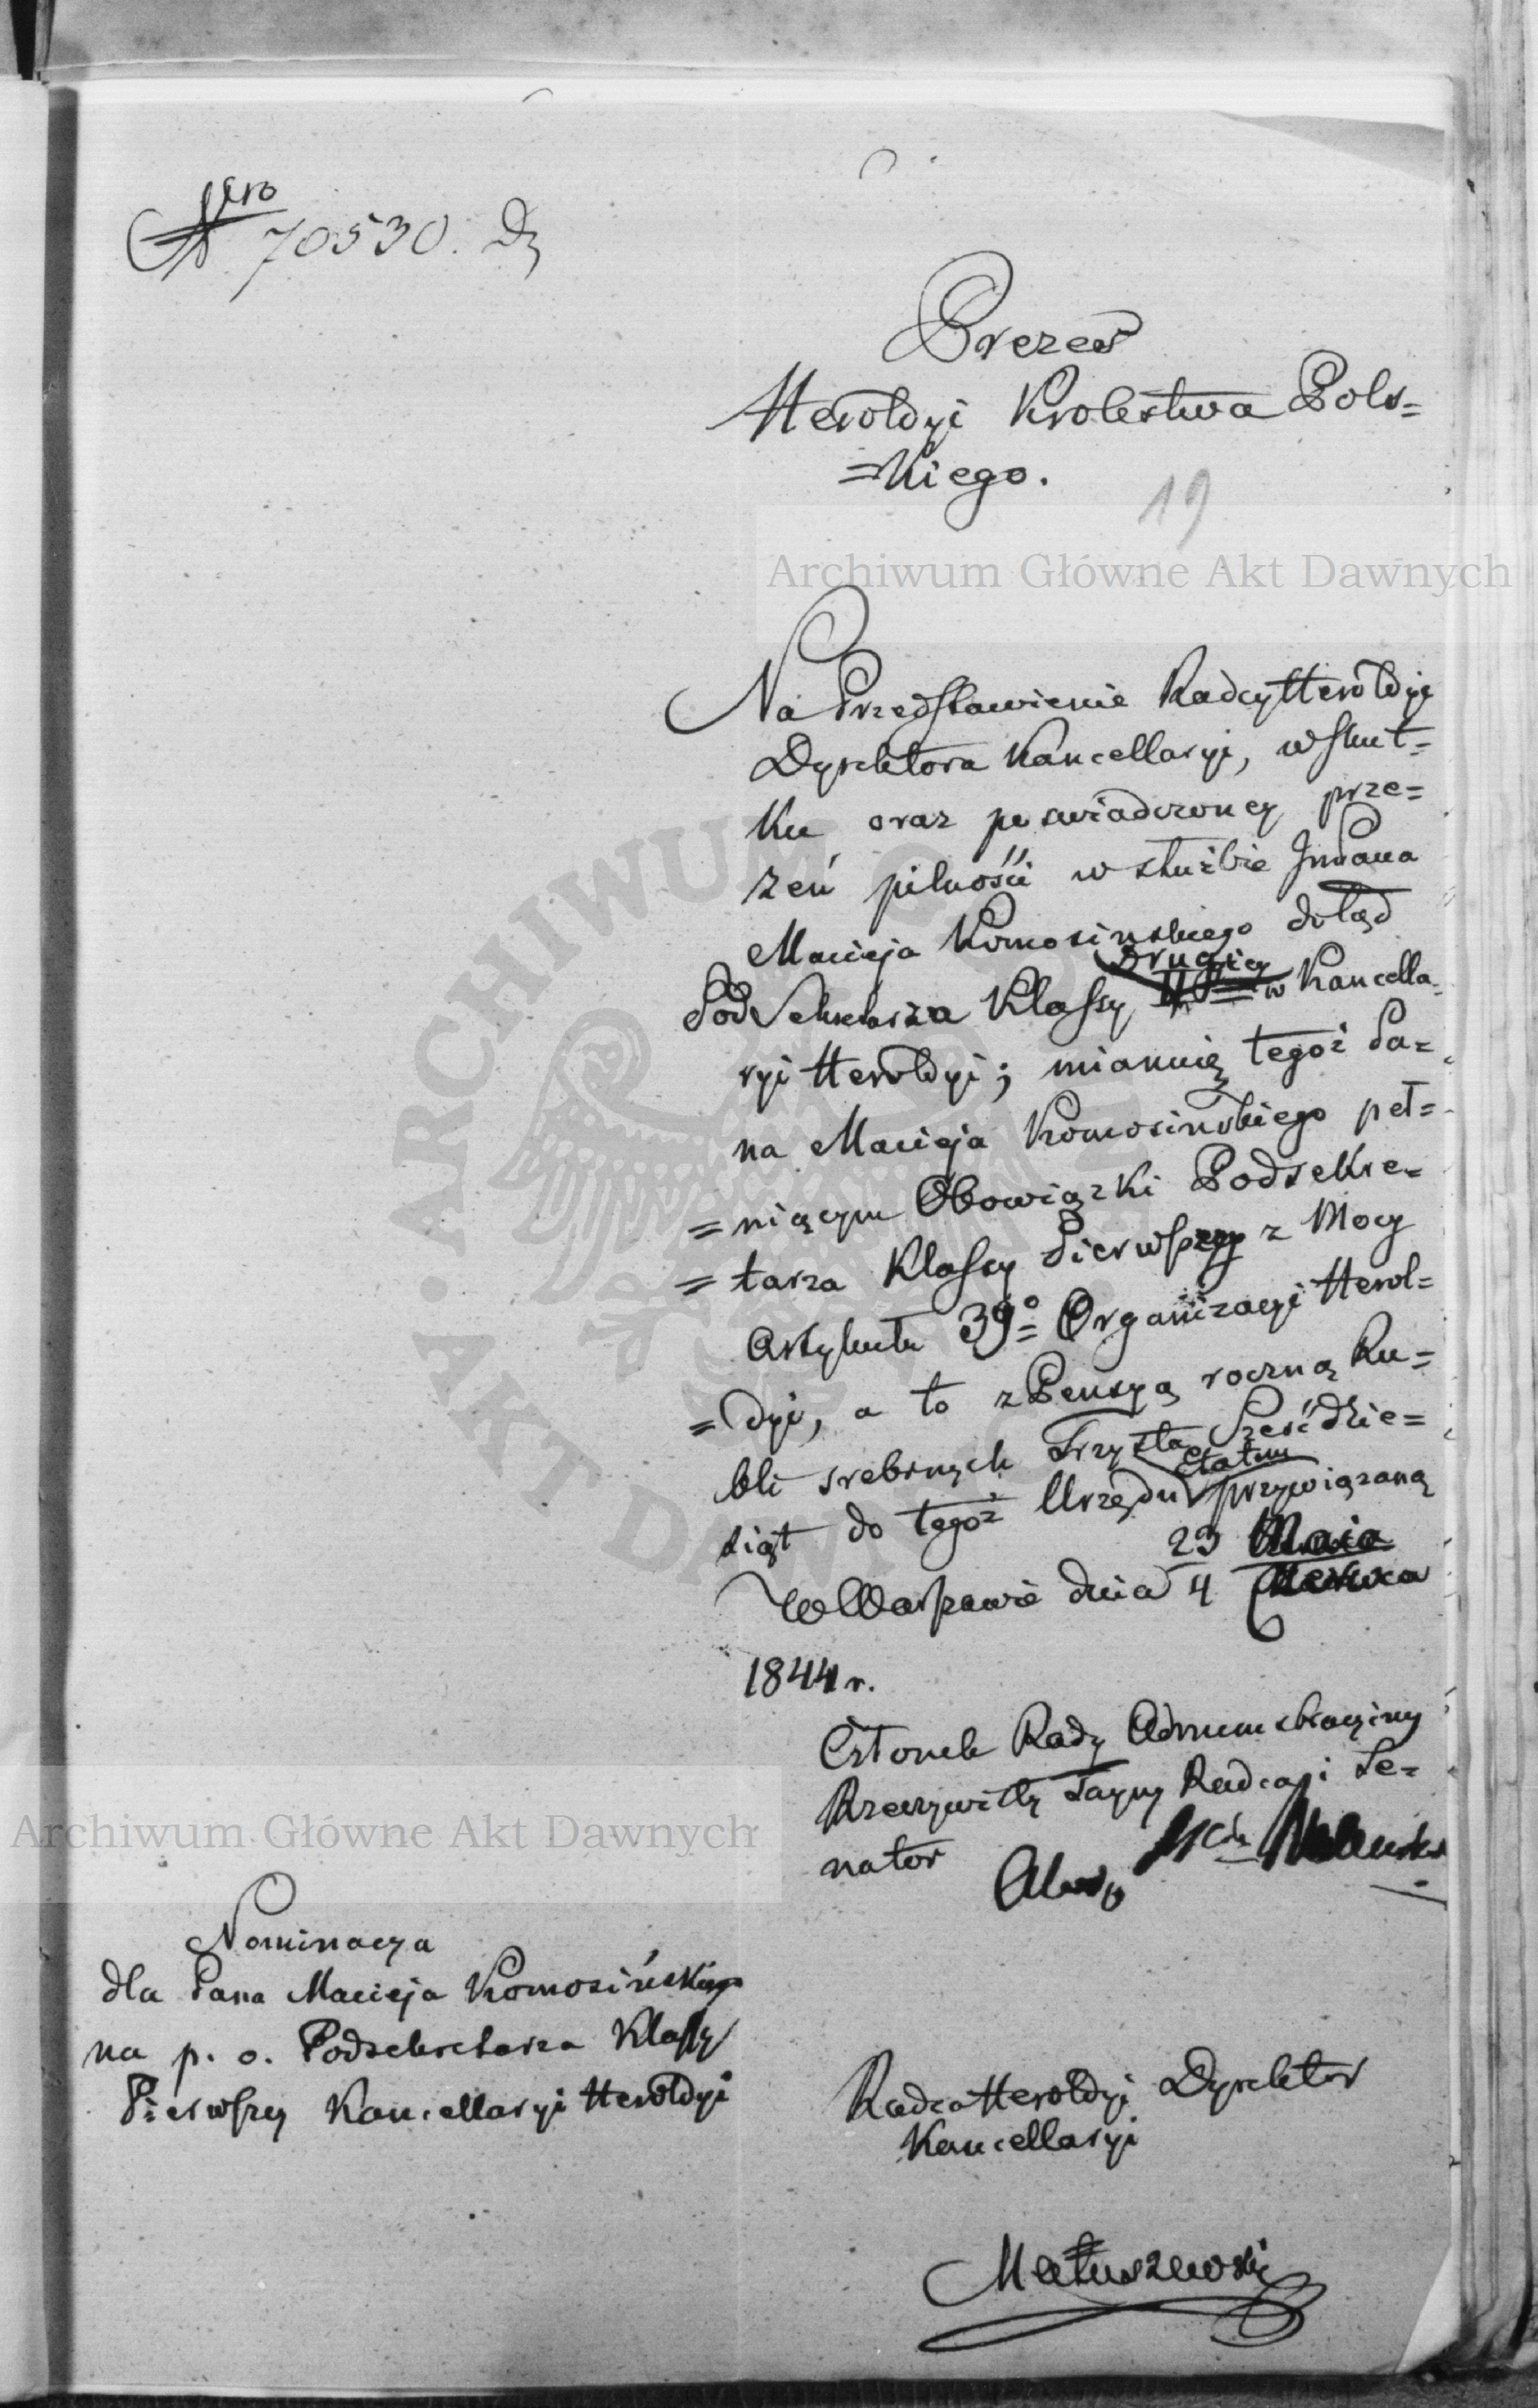 Nro 70530.
Prezes
Heroldyi Krolestwa Pols=
=kiego.
19
Archiwum Główne Akt Dawnych
Na Przedstawienie Radcy Heroldyi
Dyrektora Kancellaryi, w skut=
ku oraz poswiadczoney prze=
zeń pilności w służbie JmPana
Macieja Komosinskiego dotąd
Pod Sekretarza Klassy Drugiey w Kancella=
ryi Heroldyi; mianuię tegoż Pa=
na Macieja Komosinskiego peł=
=niącym Obowiązki Podsekre=
=tarza Klassy Pierwszey z Mocy
Artykułu 39o Organizacyi Herol=
=dyi, a to z Pensyą roczną Ru=
bli srebrnych Trzysta Sześćdzie=
siąt do tegoż Urzędu Etatem przywiązaną
W Warszawie dnia 23 Maia
4 Czerwca
1844 r.
Członek Rady Administracyiny
Rzeczywisty Tayny Radca i Se=
nator
Nominacya
dla Pana Macieja Komosińskiego
na p. o. Podsekretarza Klassy
Pierwszey Kancellaryi Heroldyi
Radca Heroldyi Dyrektor
Kancellaryi
Matuszewski
Archiwum Główne Akt Dawnych
ARCHIWUM
AKT